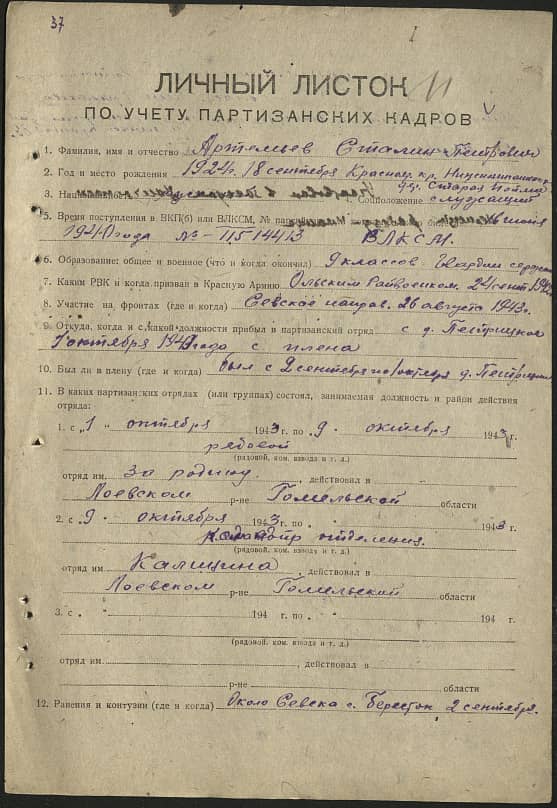 37
I
11
ЛИЧНЫЙ ЛИСТОК
ПО УЧЕТУ ПАРТИЗАНСКИХ КАДРОВ
1. Фамилия, имя и отчество Артемьев Сталин Петрович
2. Год и место рождения 1924г. 18 сентября Краснояр. кр.
Старая Пойма
3. Соцположение служащий
5. Время поступления в ВКП(б) или ВЛКСМ, № июня
1940 года № 11514413 ВЛКСМ.
6. Образование: общее и военное (что и когда окончил) 9 классов. Гвардии
7. Каким РВК и когда призван в Красную Армию Ольским Райвоенком. 24 сент.
8. Участие на фронтах (где и когда) Севское направ. 26 августа 1943г.
9. Откуда, когда и с какой должности прибыл в партизанский отряд с д.
октября 1943 года с плена
10. Был ли в плену (где и когда) был с 2 сентября по октября д.
11. В каких партизанских отрядах (или группах) состоял, занимаемая должность и район действия
отряда:
1. с „1" октября 1943 г. по 9 октября 1943 г.
рядовой
(рядовой, ком. взвода и т. д.)
отряд им. За родину , действовал в
Лоевском р-не Гомельской области
2. с 9 октября 1943 г. по „ 1943 г.
командир отделения.
(рядовой, ком. взвода и т. д.)
отряд им. Калинина , действовал в
Лоевском р-не Гомельский области
3. с „ " 194 г. по „ 194 г.
(рядовой, ком. взвода и т. д.)
отряд им. , действовал в
р-не области
12. Ранения и контузии (где и когда) Около Севска с. Бересток 2 сентября.